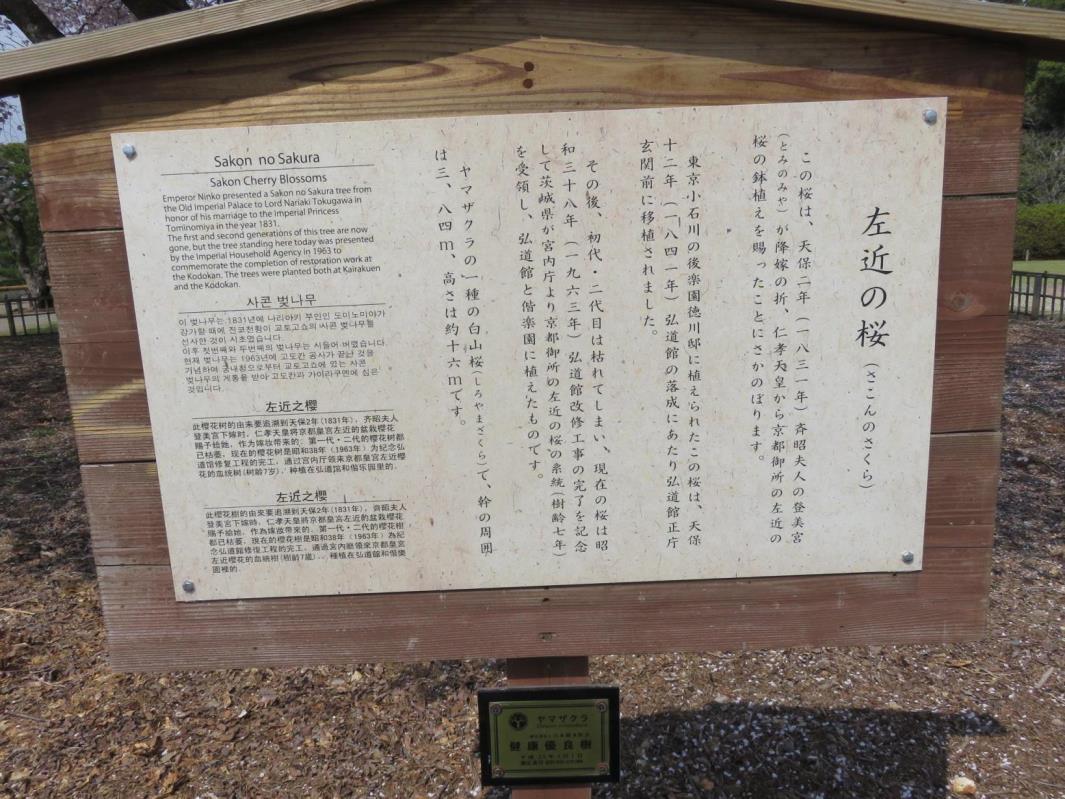 左近の桜（さこんのさくら）
この桜は、天保二年（一八三一年）斉昭夫人の登美宮
（とみのみや）が降嫁の折、仁孝天皇から京都御所の左近の
桜の鉢植えを賜ったことにさかのぼります。
東京小石川の後楽園徳川邸に植えられたこの桜は、天保
十二年（一八四一年）弘道館の落成にあたり弘道館正庁
玄関前に移植されました。
その後、初代・二代目は枯れてしまい、現在の桜は昭
和三十八年（一九六三年）弘道館改修工事の完了を記念
して茨城県が宮内庁より京都御所の左近の桜の系統（樹齢七年）
を受領し、弘道館と偕楽園に植えたものです。
ヤマザクラの一種の白山桜（しろやまざくら）で、幹の周囲
は三、八四m、高さは約十六mです。
Sakon no Sakura
Sakon Cherry Blossoms
Emperor Ninko presented a Sakon no Sakura tree from
the Old Imperial Palace to Lord Nariaki Tokugawa in
honor of his marriage to the Imperial Princess
Tominomiya in the year 1831.
The first and second generations of this tree are now
gone, but the tree standing here today was presented
by the Imperial Household Agency in 1963 to
commemorate the completion of restoration work at
the Kodokan. The trees were planted both at Kairakuen
and the Kodokan.
사콘 벚나무
이 벚나무는 1831년에 나리아키 부인인 도미노미야가
강가할 때에 진코천황이 교토고쇼의 사콘 벚나무를
선사한 것이 시초였습니다.
이후 첫번째와 두번째의 벚나무는 시들어 버렸습니다.
현재 벚나무는 1963년에 고도칸 공사가 끝난 것을
기념하여 궁내청으로부터 교토고쇼에 있는 사콘
벚나무의 계통을 받아 고도칸과 가이라쿠엔에 심은
것입니다.
左近之櫻
此樱花树的由来要追溯到天保2年（1831年），齐昭夫人
登美宫下嫁时，仁孝天皇将京都皇宫左近的盆栽樱花
赐予给她，作为嫁妆带来的。第一代・二代的樱花树都
已枯萎，现在的樱花树是昭和38年（1963年）为纪念弘
道馆修复工程的完工，通过宫内厅领来京都皇宫左近樱
花的血统树（树龄7岁），种植在弘道馆和偕乐园里的。
左近之櫻
此櫻花樹的由來要追溯到天保2年（1831年），齊昭夫人
登美宮下嫁時，仁孝天皇將京都皇宮左近的盆栽櫻花
賜予給她，作為嫁妝帶來的。第一代・二代的櫻花樹
都已枯萎，現在的櫻花樹是昭和38年（1963年）為紀
念弘道館修復工程的完工，通過宮內廳領來京都皇宮
左近櫻花的血統樹（樹齡7歲），種植在弘道館和偕樂
園裡的。
ヤマザクラ
健康優良樹